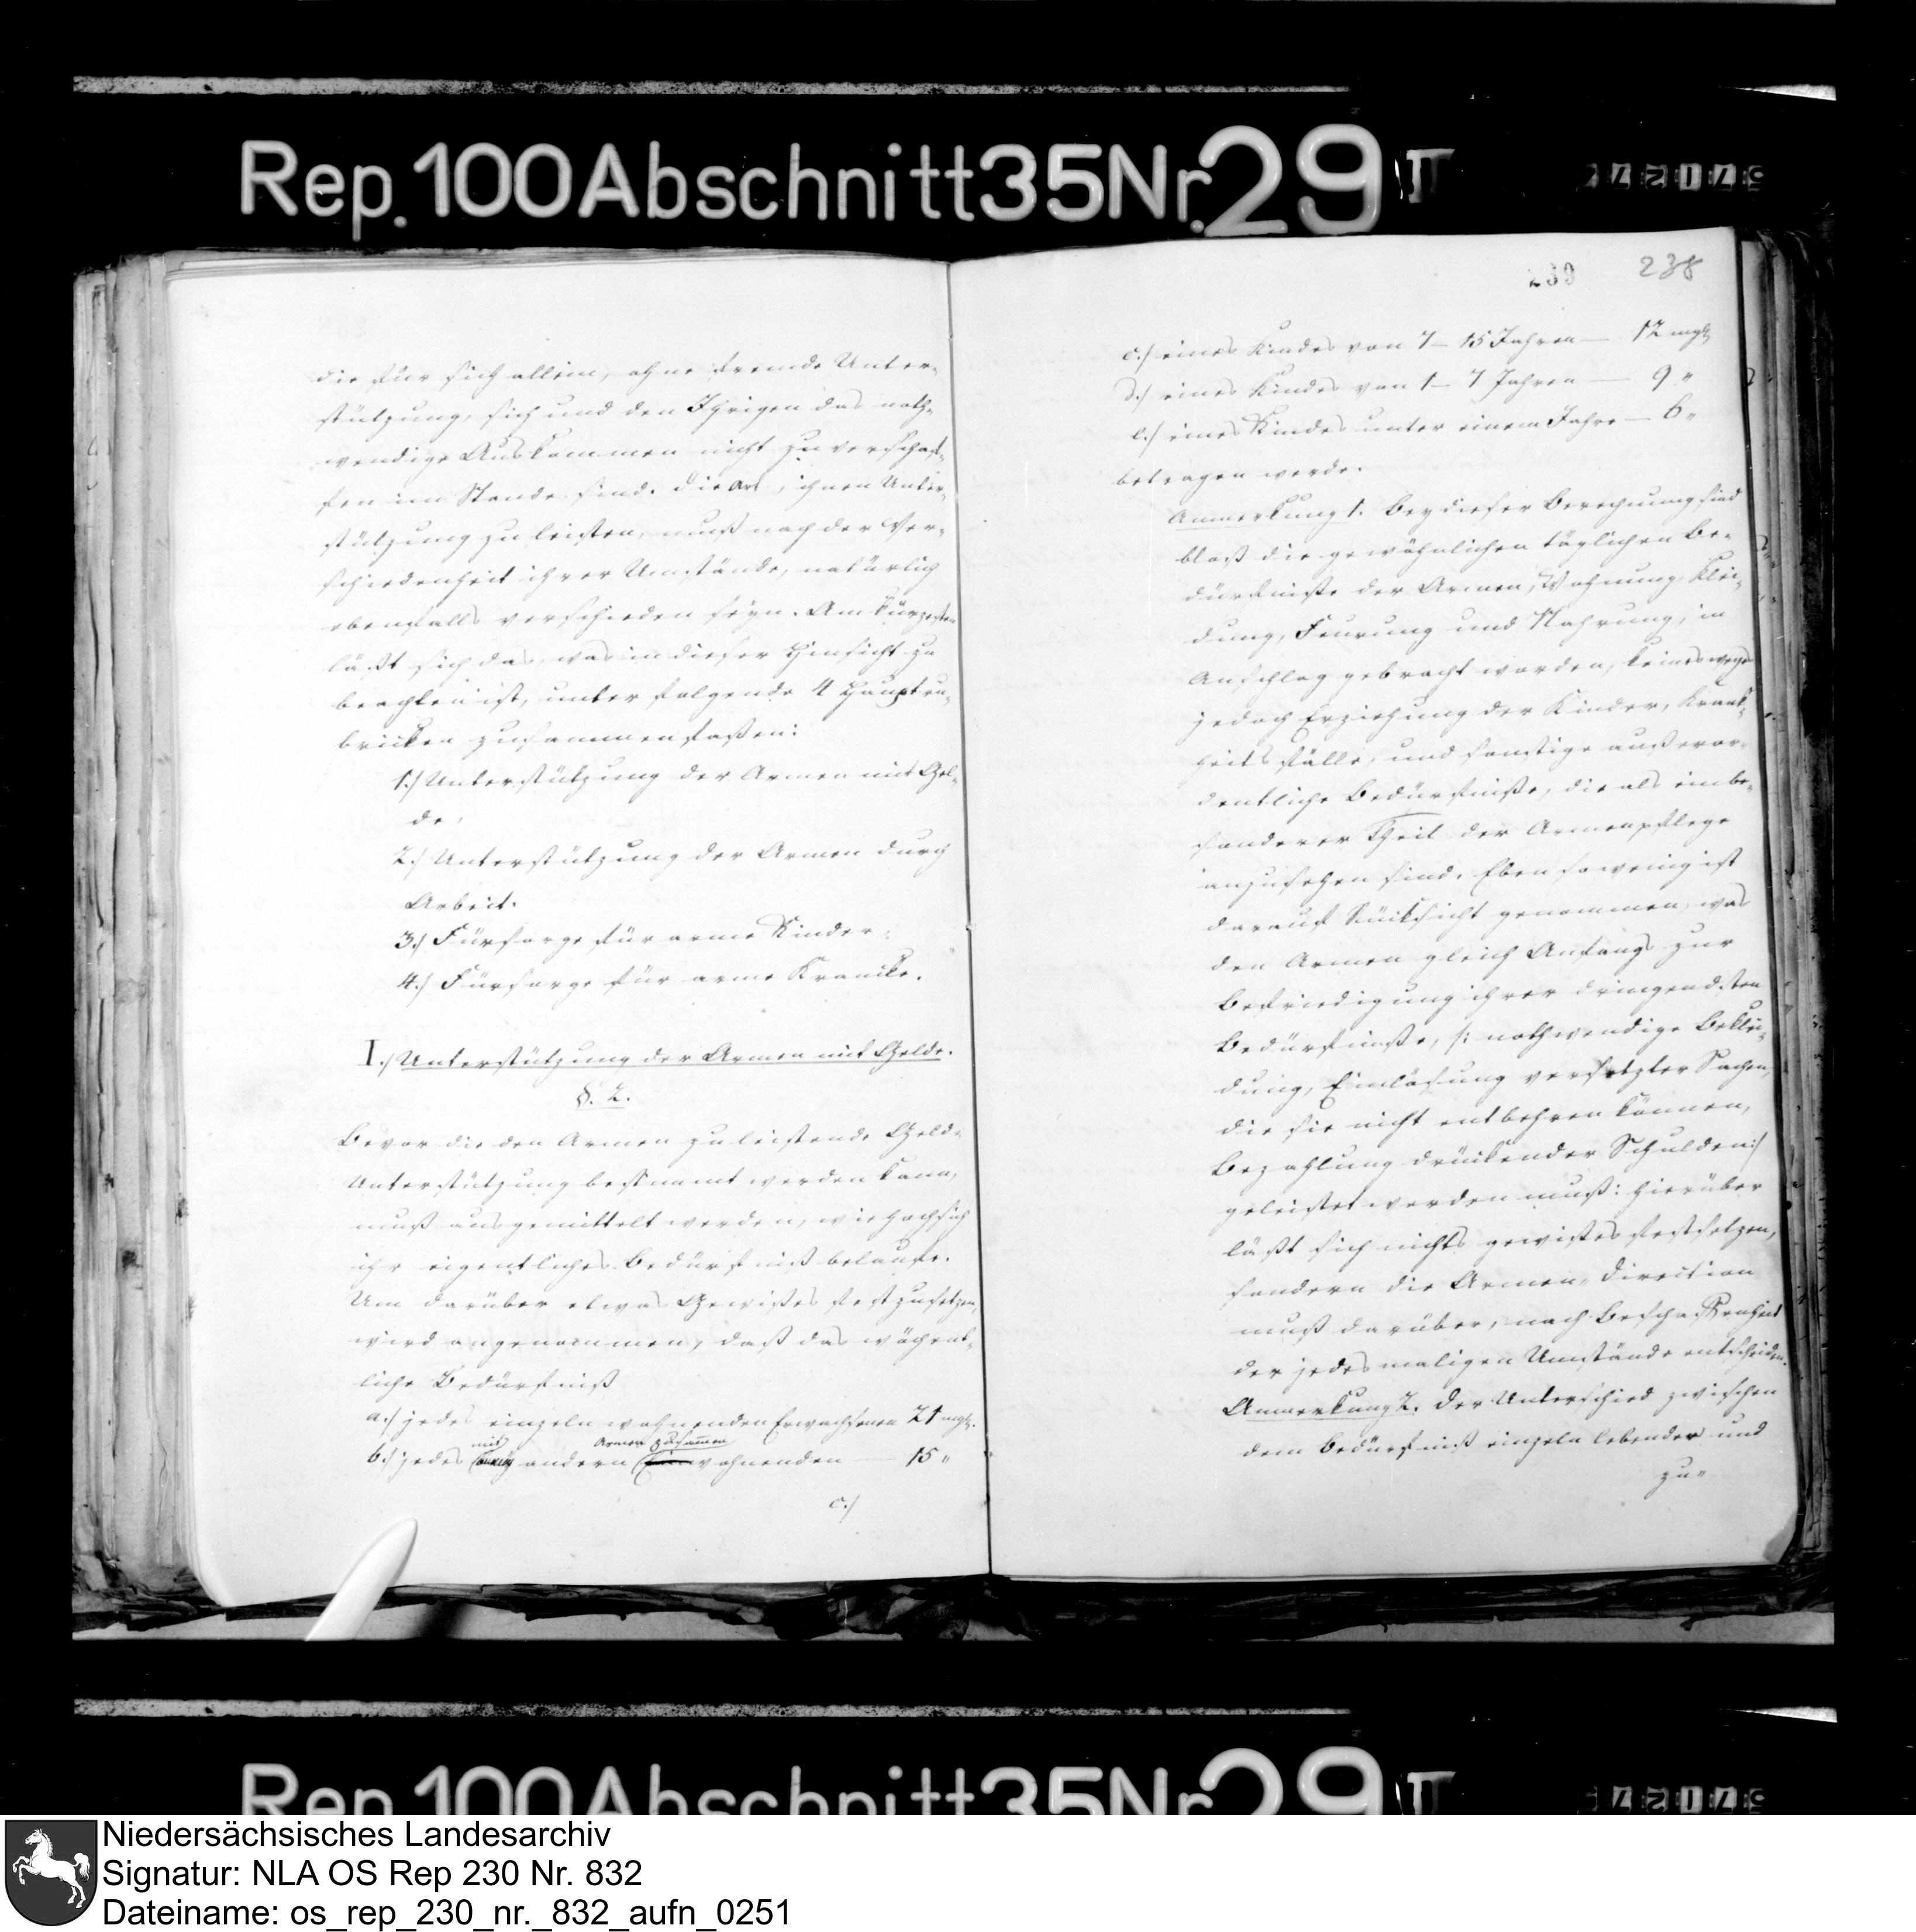 Rep. 100 Abschnitt 35 Nr. 29 II
die für sich allein, ohne fremde Unter-
stützung, sich und den Ihrigen das noth-
wendige Auskommen nicht zu verschaf-
fen im Stande sind. Die Art, ihnen Unter-
stützung zu leisten, muß nach der Ver-
schiedenheit ihrer Umstände, natürlich
ebenfalls verschieden seyn. Am kürzesten
läßt sich das, was in dieser Hinsicht zu
beachten ist, unter folgende 4 Hauptru-
bricken zusammenfaßen:
1.) Unterstützung der Armen mit Gel-
de,
2.) Unterstützung der Armen durch
Arbeit.
3.) Fürsorge für arme Kinder.
4.) Fürsorge für arme Krancke.
I.) Unterstützung der Armen mit Gelde.
§. 2.
Bevor die den Armen zu leistende Geld-
Unterstützung bestimmt werden kann,
muß ausgemittelt werden, wie hoch sich
ihr eigentliches Bedürfniß belaufe.
Um darüber etwas Gewißes festzusetzen,
wird angenommen, daß das wöchent-
liche Bedürfniß
a.) jedes einzeln wohnenden Erwachsenen 21 mgl.
mit Armen zusammen
b.) jedes andern wohnenden — 15 "
c.)
239 238
c.) eines Kindes von 7 – 15 Jahren — 12 mgl
d.) eines Kindes von 1 – 7 Jahren — 9 "
e.) eines Kindes unter einem Jahre — 6 "
betragen werde.
Anmerkung 1. Bey dieser Berechnung sind
bloß die gewöhnlichen täglichen Be-
dürfniße der Armen, Wohnung, Klei-
dung, Feurung und Nahrung, in
Anschlag gebracht worden, keineswegs
jedoch Erziehung der Kinder, Krank-
heitsfälle, und sonstige außeror-
dentliche Bedürfniße, die als ein be-
sonderer Theil der Armenpflege
anzusehen sind. Eben so wenig ist
darauf Rücksicht genommen, was
den Armen gleich Anfangs zur
Befriedigung ihrer dringendsten
Bedürfniße, /: nothwendige Beklei-
dung, Einlösung versetzter Sachen,
die sie nicht entbehren können,
Bezahlung drückender Schulden :/
geleistet werden muß: hierüber
läßt sich nichts gewißes festsetzen,
sondern die Armen-Direction
muß darüber, nach Beschaffenheit
der jedesmaligen Umstände entscheiden.
Anmerkung 2. Der Unterschied zwischen
dem Bedürfniß einzeln lebender und
zu-
Rep. 100 Abschnitt 35 Nr. 29 II
Niedersächsisches Landesarchiv
Signatur: NLA OS Rep 230 Nr. 832
Dateiname: os_rep_230_nr._832_aufn_0251